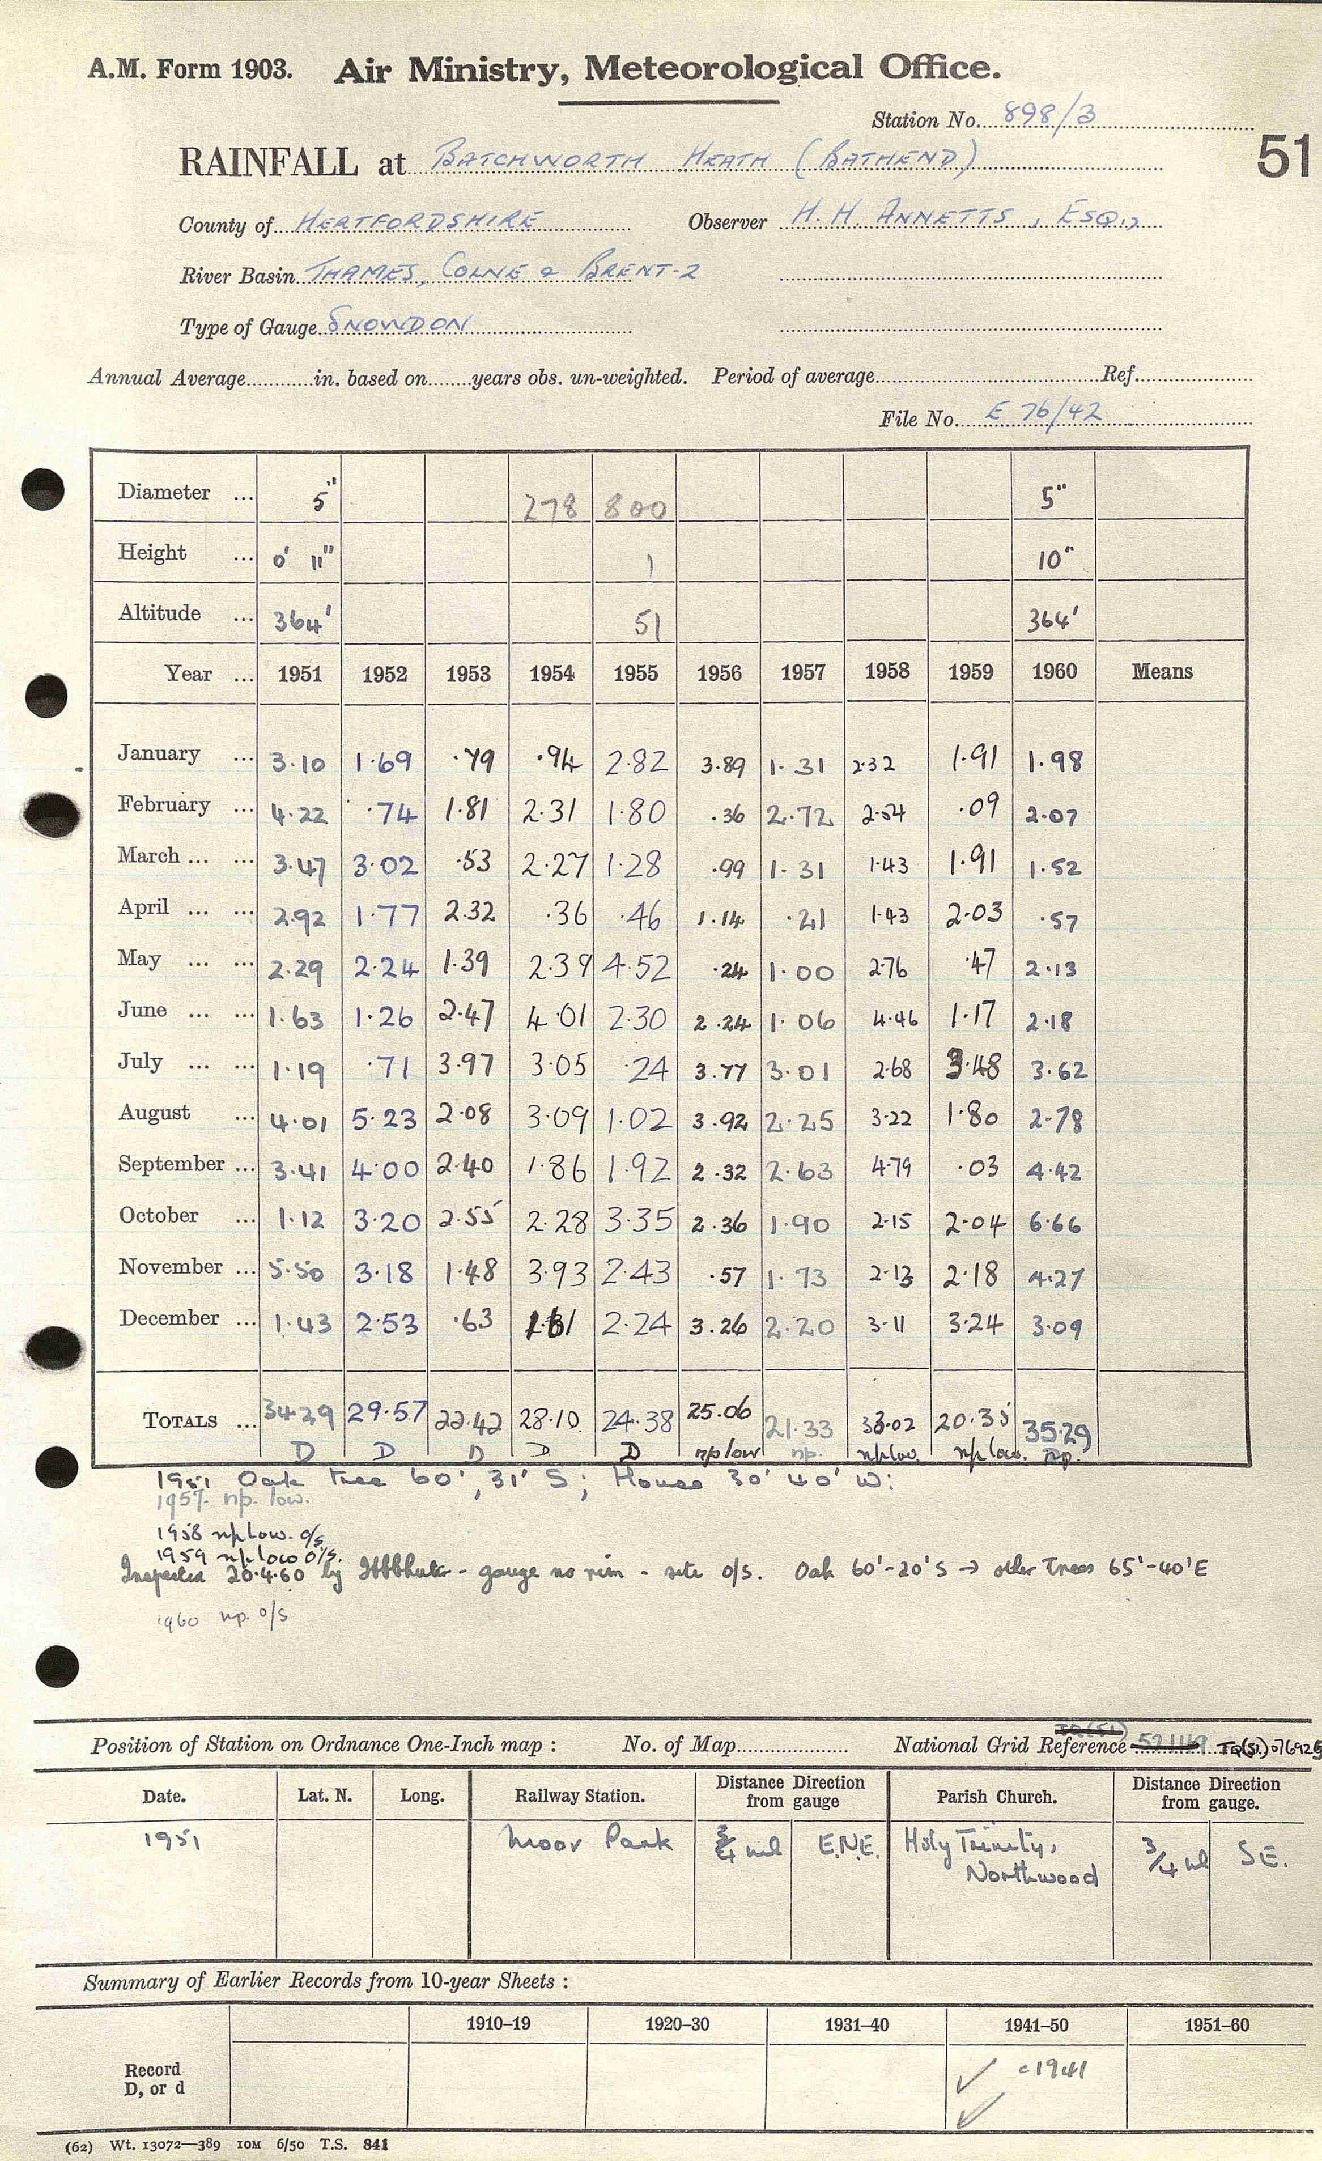 A.M. Form 1903. Air Ministry, Meteorological Office.
Station No. 898/3
51
RAINFALL at BATCHWORTH HEATH (BATHEND)
County of HERTFORDSHIRE Observer H. H. ANNETTS, ESQ.,
River Basin THAMES, COLNE & BRENT-2
Type of Gauge SNOWDON
Annual Average............in. based on........years obs. un-weighted. Period of average........................Ref.....................
File No. E 76/42
Diameter ... 5" 278 800 5"
Height ... 0' 11" 1 10"
Altitude ... 364' 51 364'
Year ... 1951 1952 1953 1954 1955 1956 1957 1958 1959 1960 Means
January ... 3.10 1.69 .79 .94 2.82 3.89 1.31 2.32 1.91 1.98
February ... 4.22 .74 1.81 2.31 1.80 .36 2.72 2.54 .09 2.07
March ... ... 3.47 3.02 .53 2.27 1.28 .99 1.31 1.43 1.91 1.52
April ... ... 2.92 1.77 2.32 .36 .46 1.14 .21 1.43 2.03 .57
May ... ... 2.29 2.24 1.39 2.39 4.52 .24 1.00 2.76 .47 2.13
June ... ... 1.63 1.26 2.47 4.01 2.30 2.24 1.06 4.46 1.17 2.18
July ... ... 1.19 .71 3.97 3.05 .24 3.77 3.01 2.68 3.48 3.62
August ... 4.01 5.23 2.08 3.09 1.02 3.92 2.25 3.22 1.80 2.78
September ... 3.41 4.00 2.40 1.86 1.92 2.32 2.63 4.79 .03 4.42
October ... 1.12 3.20 2.55 2.28 3.35 2.36 1.90 2.15 2.04 6.66
November ... 5.50 3.18 1.48 3.93 2.43 .57 1.73 2.13 2.18 4.27
December ... 1.43 2.53 .63 1.61 2.24 3.26 2.20 3.11 3.24 3.09
TOTALS ... 34.29 29.57 22.42 28.10 24.38 25.06 21.33 33.02 20.35 35.29
D D D D D np low np. np low. np low. np.
1951 Oak tree 60', 31' S; House 30' 40' W:
1957. np. low.
1958 np low. o/s
1959 np low o/s.
Inspected 20.4.60 by - gauge no rim - site o/s. Oak 60'-20'S → other Trees 65'-40'E
1960 np. o/s
Position of Station on Ordnance One-Inch map : No. of Map.................... National Grid Reference 521149 TQ(51) 076925
TQ(51)
Date. Lat. N. Long. Railway Station. Distance from gauge Direction Parish Church. Distance from gauge. Direction
1951 Moor Park 3/4 ml E.N.E. Holy Trinity, Northwood 3/4 ml S.E.
Summary of Earlier Records from 10-year Sheets :
1910–19 1920–30 1931–40 1941–50 1951–60
Record
D, or d
✓ c1941
✓
(62) Wt. 13072—389 10M 6/50 T.S. 841